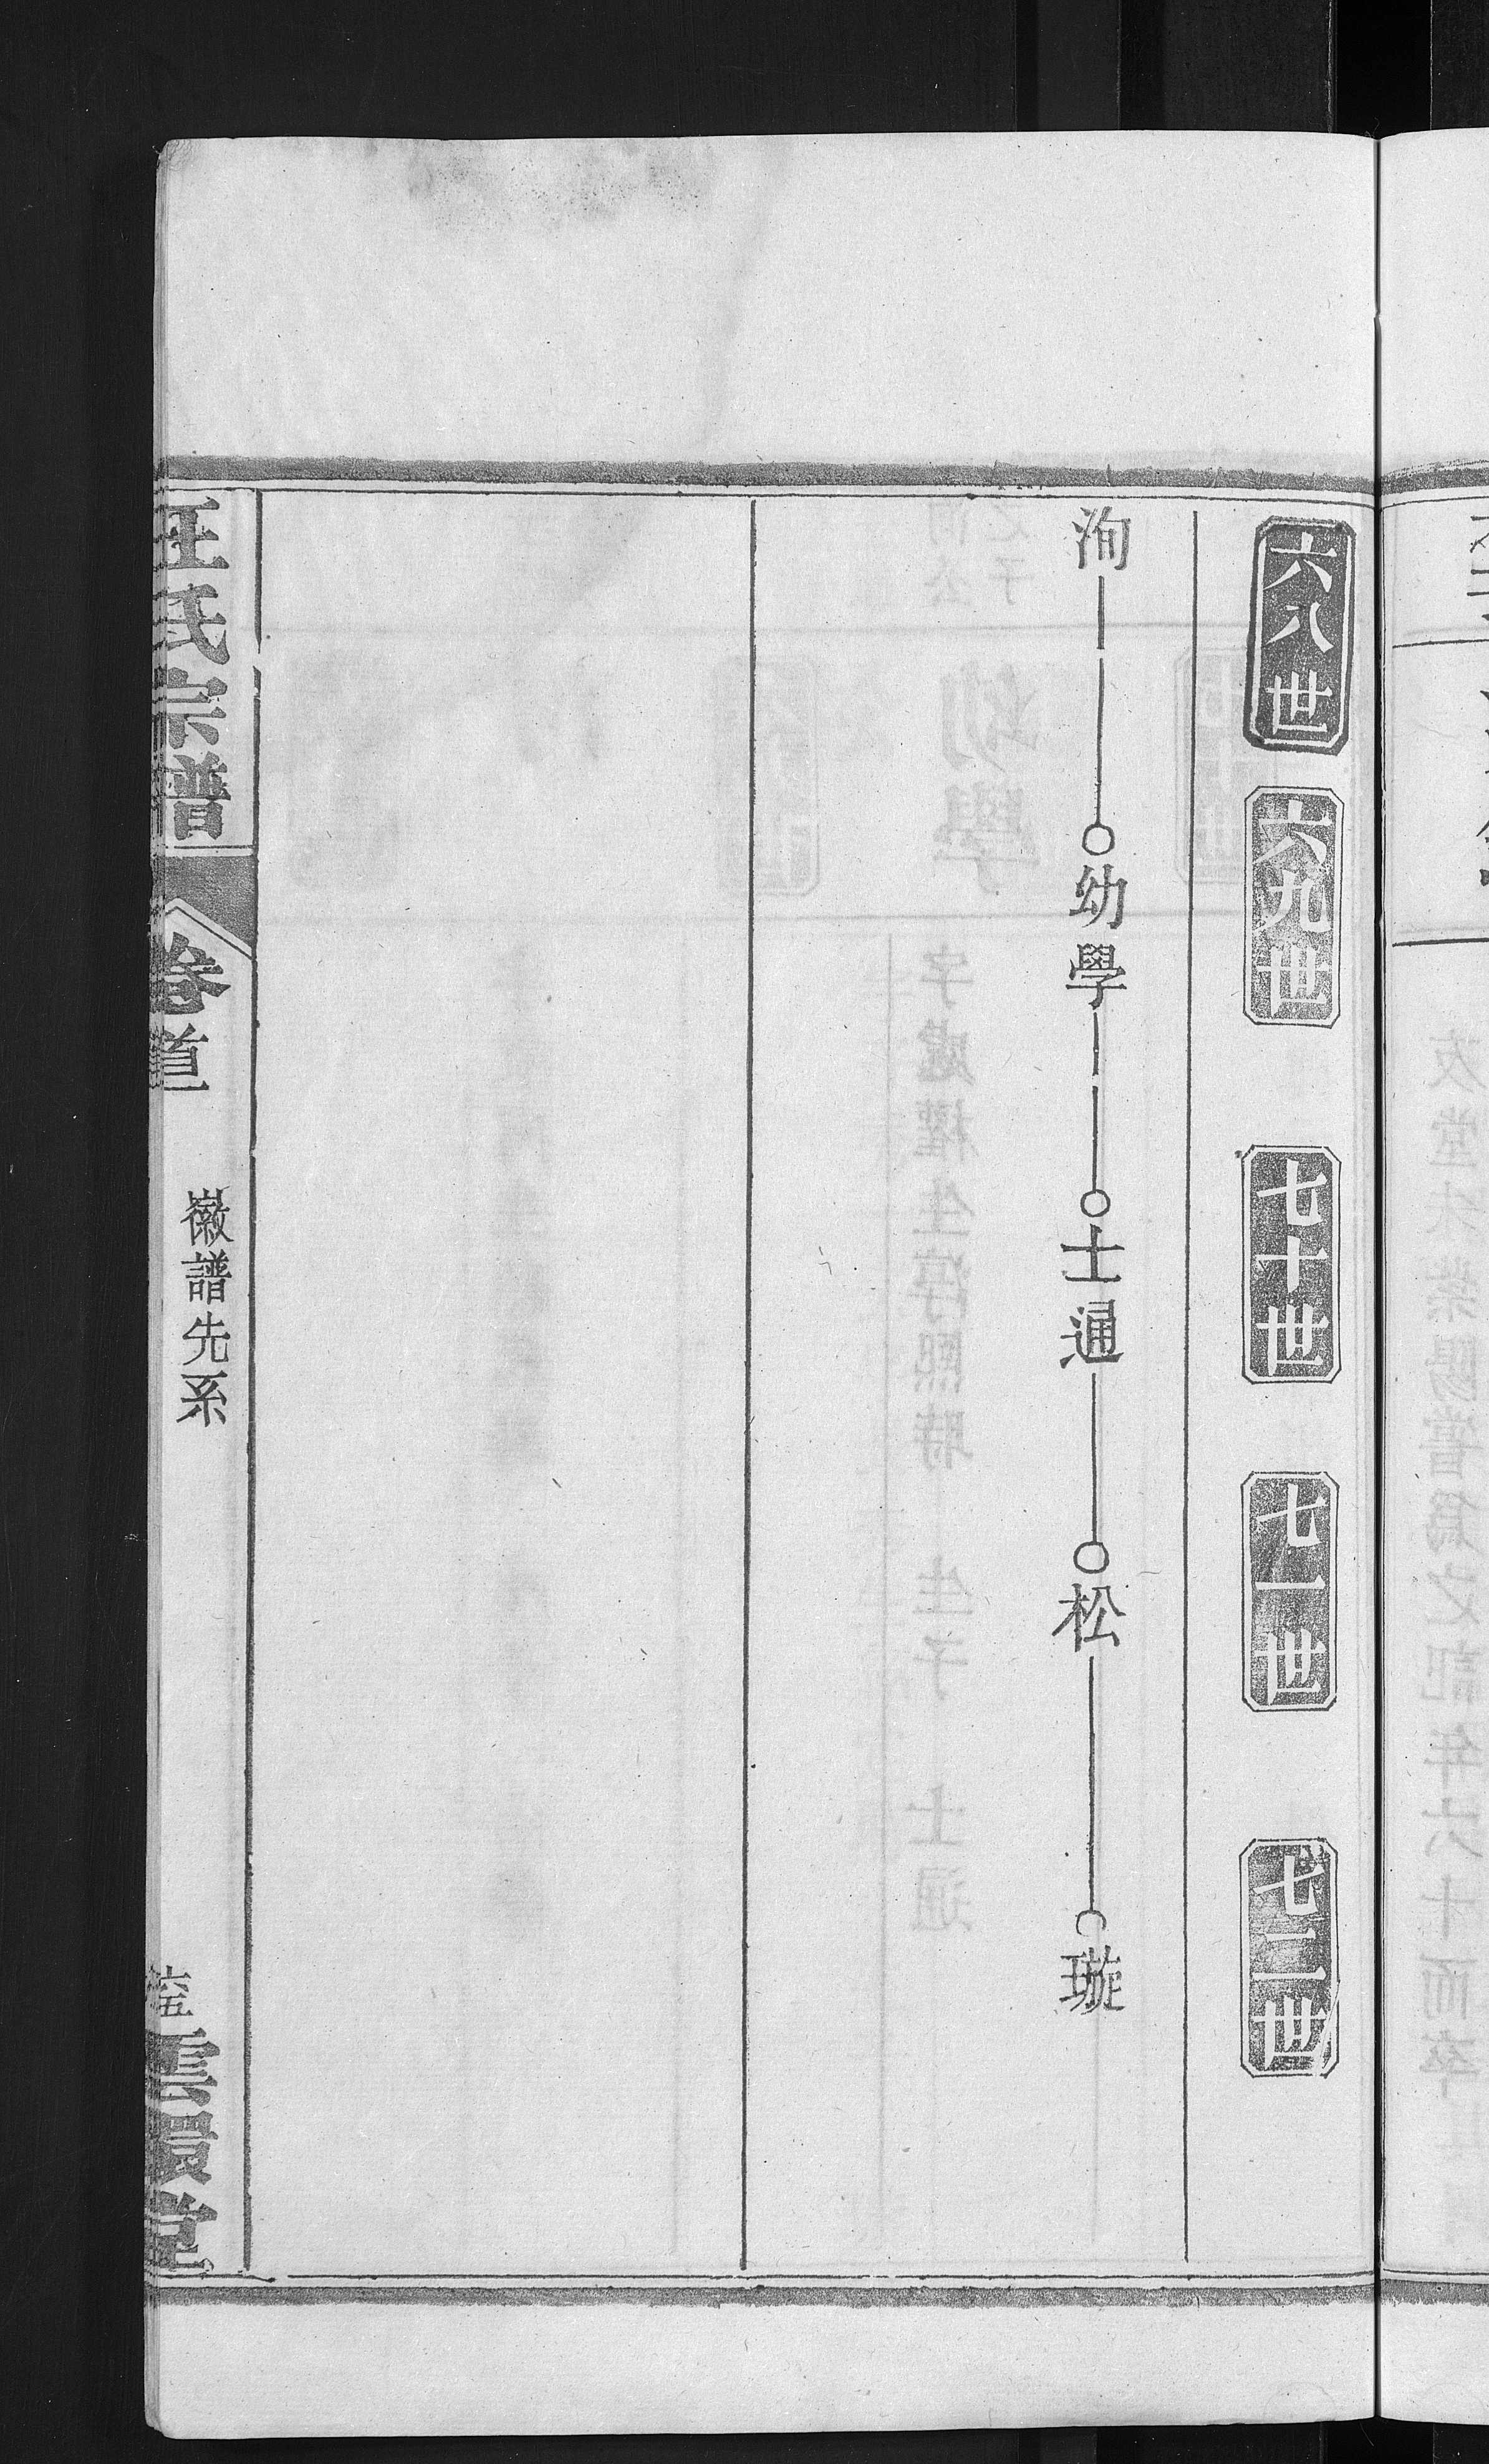 六八世 六九世 七十世 七一世 七二世
洵 幼學 士通 松 璇
汪氏宗譜 卷首 徽譜先系 六五